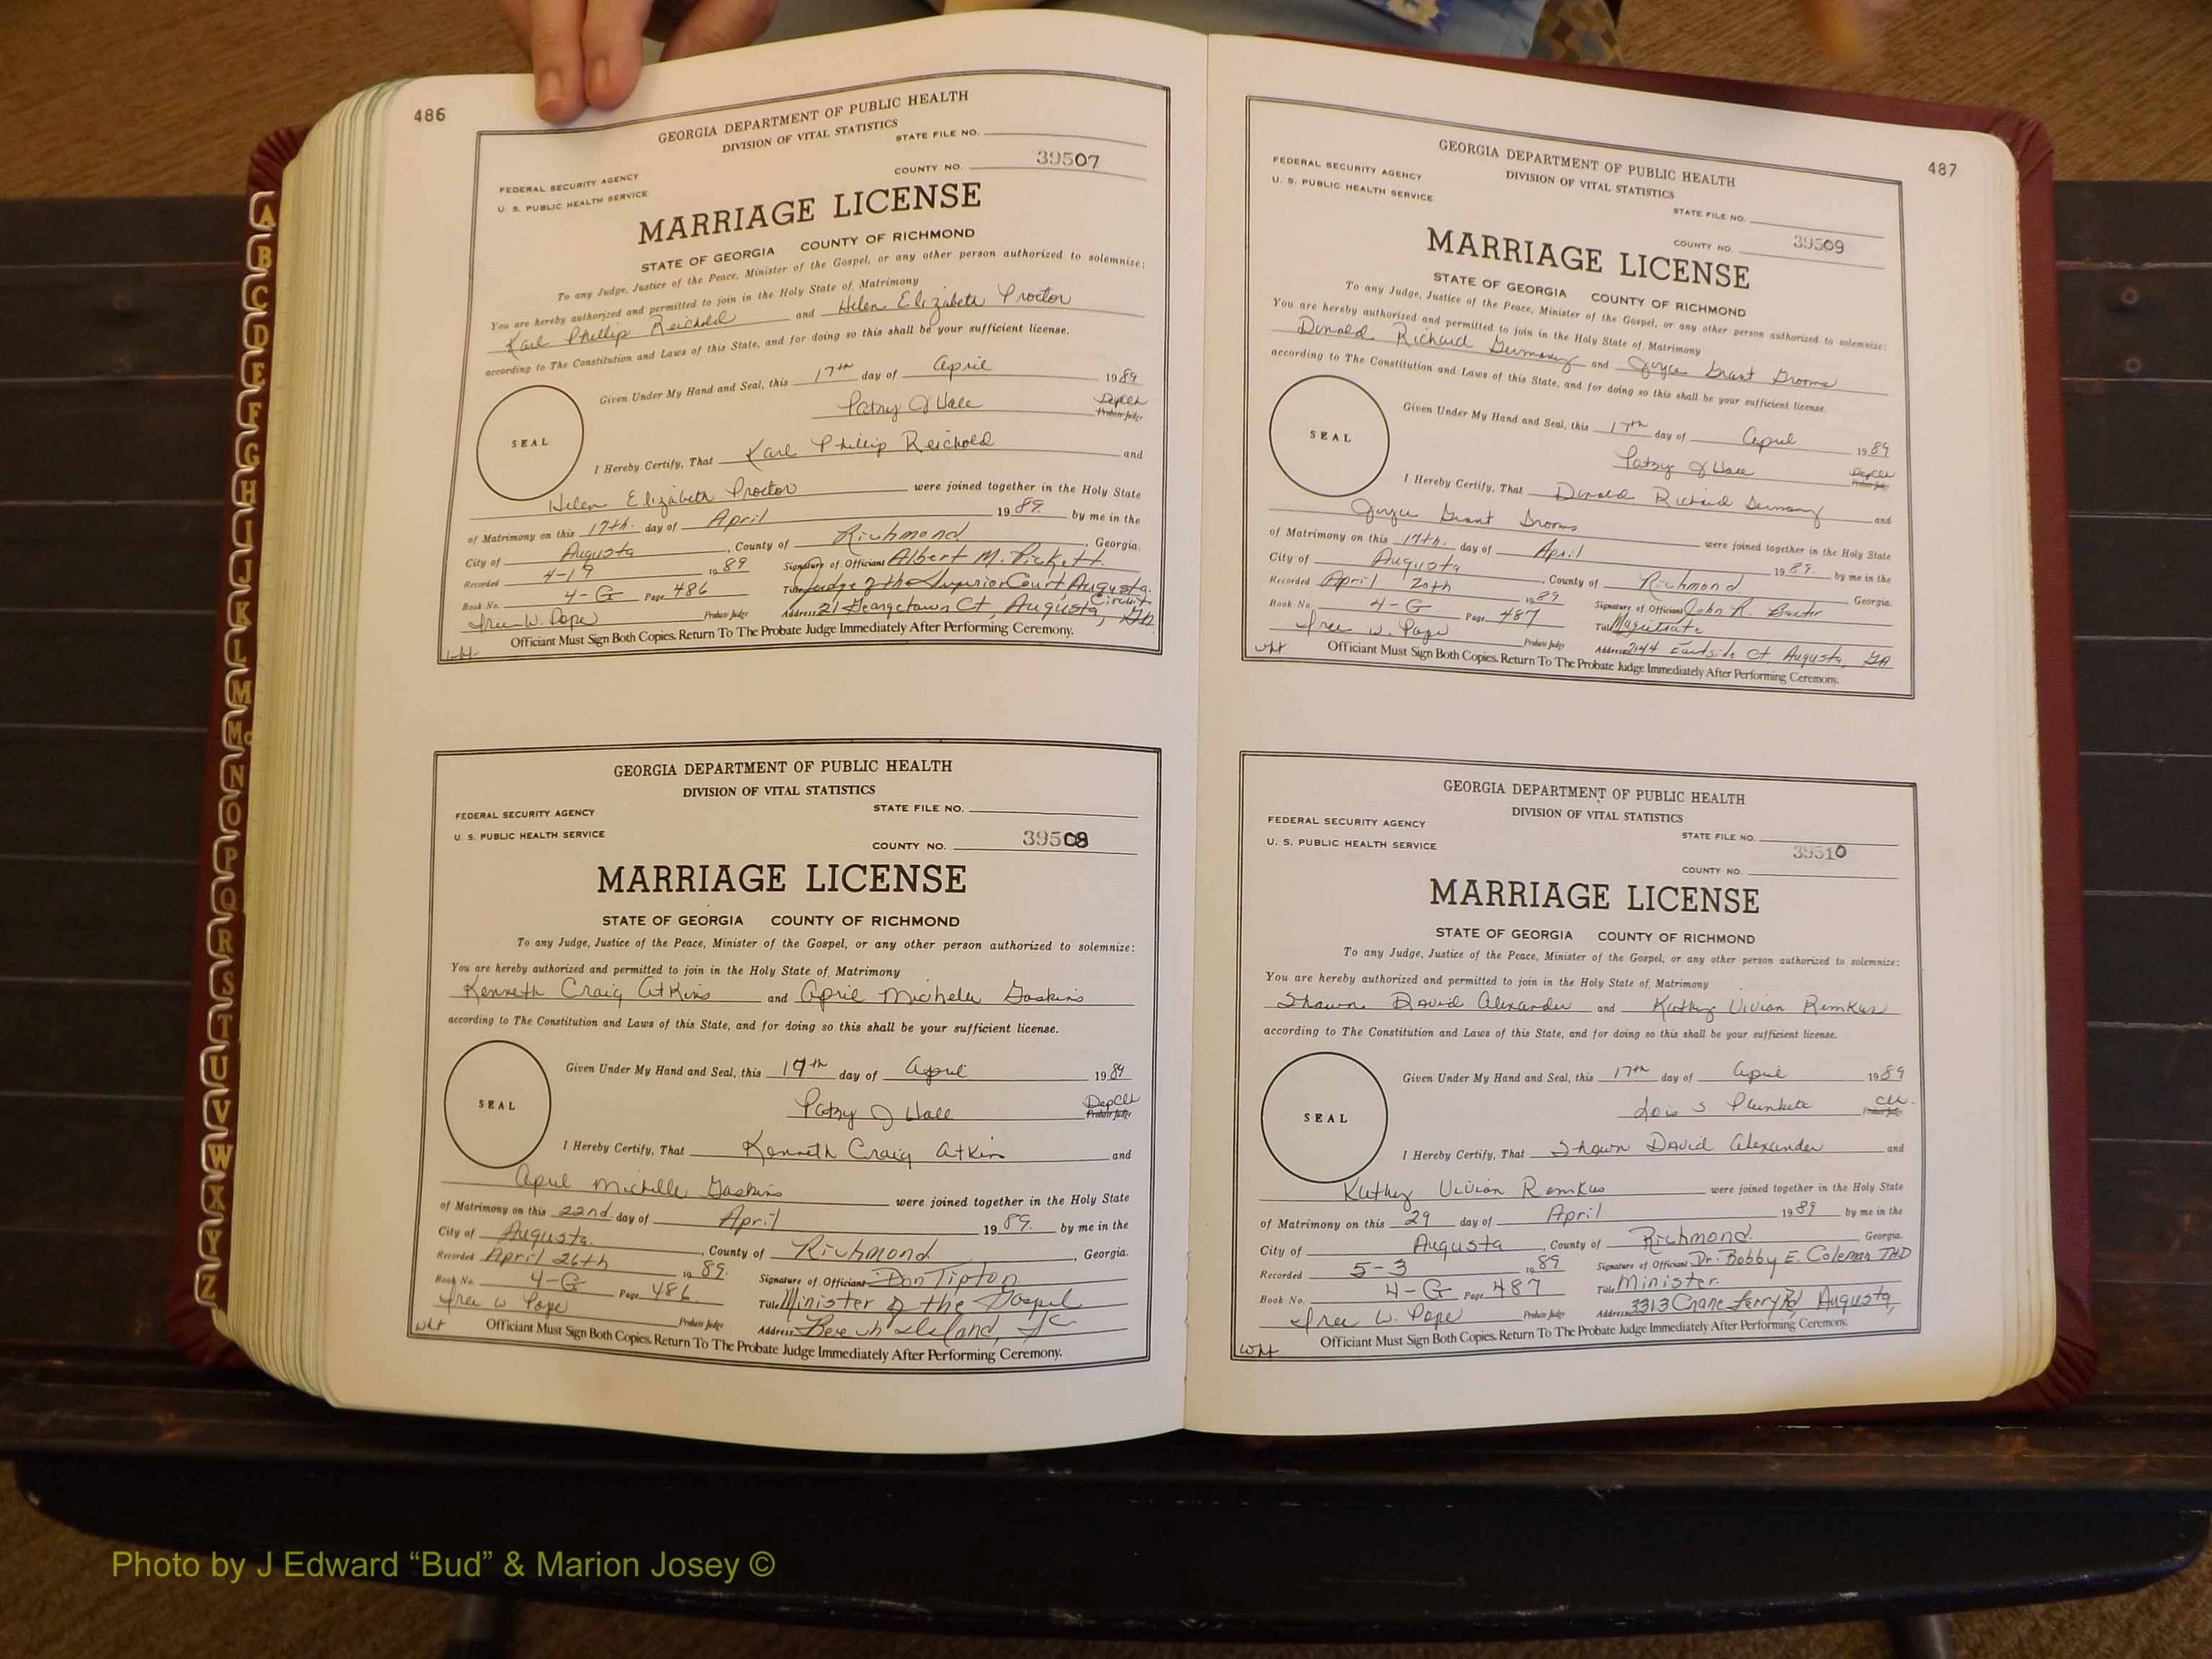 486
GEORGIA DEPARTMENT OF PUBLIC HEALTH
DIVISION OF VITAL STATISTICS
STATE FILE NO.
FEDERAL SECURITY AGENCY
COUNTY NO. 39507
U. S. PUBLIC HEALTH SERVICE
MARRIAGE LICENSE
STATE OF GEORGIA COUNTY OF RICHMOND
To any Judge, Justice of the Peace, Minister of the Gospel, or any other person authorized to solemnize:
You are hereby authorized and permitted to join in the Holy State of Matrimony
Karl Phillip Reichold and Helen Elizabeth Proctor
according to The Constitution and Laws of this State, and for doing so this shall be your sufficient license.
Given Under My Hand and Seal, this 17th day of April 1989
Patsy J Hall DepClk
Probate Judge
SEAL
I Hereby Certify, That Karl Phillip Reichold and
Helen Elizabeth Proctor were joined together in the Holy State
of Matrimony on this 17th. day of April 1989. by me in the
City of Augusta, County of Richmond, Georgia.
Recorded 4-19 1989 Signature of Officiant Albert M. Pickett.
Book No. 4-G Page 486 Title Judge of the Superior Court Augusta Circuit
Iree W. Pope Probate Judge Address 21 Georgetown Ct, Augusta, GA.
Officiant Must Sign Both Copies. Return To The Probate Judge Immediately After Performing Ceremony.
wht
GEORGIA DEPARTMENT OF PUBLIC HEALTH
DIVISION OF VITAL STATISTICS
FEDERAL SECURITY AGENCY STATE FILE NO.
U. S. PUBLIC HEALTH SERVICE COUNTY NO. 39508
MARRIAGE LICENSE
STATE OF GEORGIA COUNTY OF RICHMOND
To any Judge, Justice of the Peace, Minister of the Gospel, or any other person authorized to solemnize:
You are hereby authorized and permitted to join in the Holy State of Matrimony
Kenneth Craig Atkins and April Michelle Gaskins
according to The Constitution and Laws of this State, and for doing so this shall be your sufficient license.
Given Under My Hand and Seal, this 17th day of April 1989
Patsy J Hall DepClk
Probate Judge
SEAL
I Hereby Certify, That Kenneth Craig Atkins and
April Michelle Gaskins were joined together in the Holy State
of Matrimony on this 22nd. day of April 1989. by me in the
City of Augusta, County of Richmond, Georgia.
Recorded April 26th 1989. Signature of Officiant Don Tipton
Book No. 4-G Page 486 Title Minister of the Gospel
Iree W Pope Probate Judge Address Beech Island, SC
wht Officiant Must Sign Both Copies. Return To The Probate Judge Immediately After Performing Ceremony.
487
GEORGIA DEPARTMENT OF PUBLIC HEALTH
DIVISION OF VITAL STATISTICS
FEDERAL SECURITY AGENCY
U. S. PUBLIC HEALTH SERVICE
STATE FILE NO.
COUNTY NO. 39509
MARRIAGE LICENSE
STATE OF GEORGIA COUNTY OF RICHMOND
To any Judge, Justice of the Peace, Minister of the Gospel, or any other person authorized to solemnize:
You are hereby authorized and permitted to join in the Holy State of Matrimony
Donald Richard Germany and Joyce Grant Grooms
according to The Constitution and Laws of this State, and for doing so this shall be your sufficient license.
Given Under My Hand and Seal, this 17th day of April 1989
Patsy J Hall DepClk
SEAL
I Hereby Certify, That Donald Richard Germany and
Joyce Grant Grooms were joined together in the Holy State
of Matrimony on this 17th. day of April 1989. by me in the
City of Augusta, County of Richmond Georgia.
Recorded April 20th 1989 Signature of Officiant John R. Baxter
Book No. 4-G Page 487 Title Magistrate
Iree W. Pope Probate Judge Address 2144 Eastside Ct Augusta, GA
wht Officiant Must Sign Both Copies. Return To The Probate Judge Immediately After Performing Ceremony.
GEORGIA DEPARTMENT OF PUBLIC HEALTH
DIVISION OF VITAL STATISTICS
FEDERAL SECURITY AGENCY
STATE FILE NO.
U. S. PUBLIC HEALTH SERVICE
39510
COUNTY NO.
MARRIAGE LICENSE
STATE OF GEORGIA COUNTY OF RICHMOND
To any Judge, Justice of the Peace, Minister of the Gospel, or any other person authorized to solemnize:
You are hereby authorized and permitted to join in the Holy State of Matrimony
Shawn David Alexander and Kathy Vivian Remkus
according to The Constitution and Laws of this State, and for doing so this shall be your sufficient license.
Given Under My Hand and Seal, this 17th day of April 1989
Lois S Plunkett Clk.
SEAL
I Hereby Certify, That Shawn David Alexander and
Kathy Vivian Remkus were joined together in the Holy State
of Matrimony on this 29 day of April 1989 by me in the
City of Augusta, County of Richmond. Georgia.
Recorded 5-3 1989 Signature of Officiant Dr. Bobby E. Coleman THD
Book No. 4-G Page 487 Title Minister.
Iree W. Pope Probate Judge Address 3313 Crane Ferry Rd Augusta,
Officiant Must Sign Both Copies. Return To The Probate Judge Immediately After Performing Ceremony.
wht
A
B
C
D
E
F
G
H
I
J
K
L
M
Mc
N
O
P
Q
R
S
T
U
V
W
X
Y
Z
Photo by J Edward “Bud” & Marion Josey ©